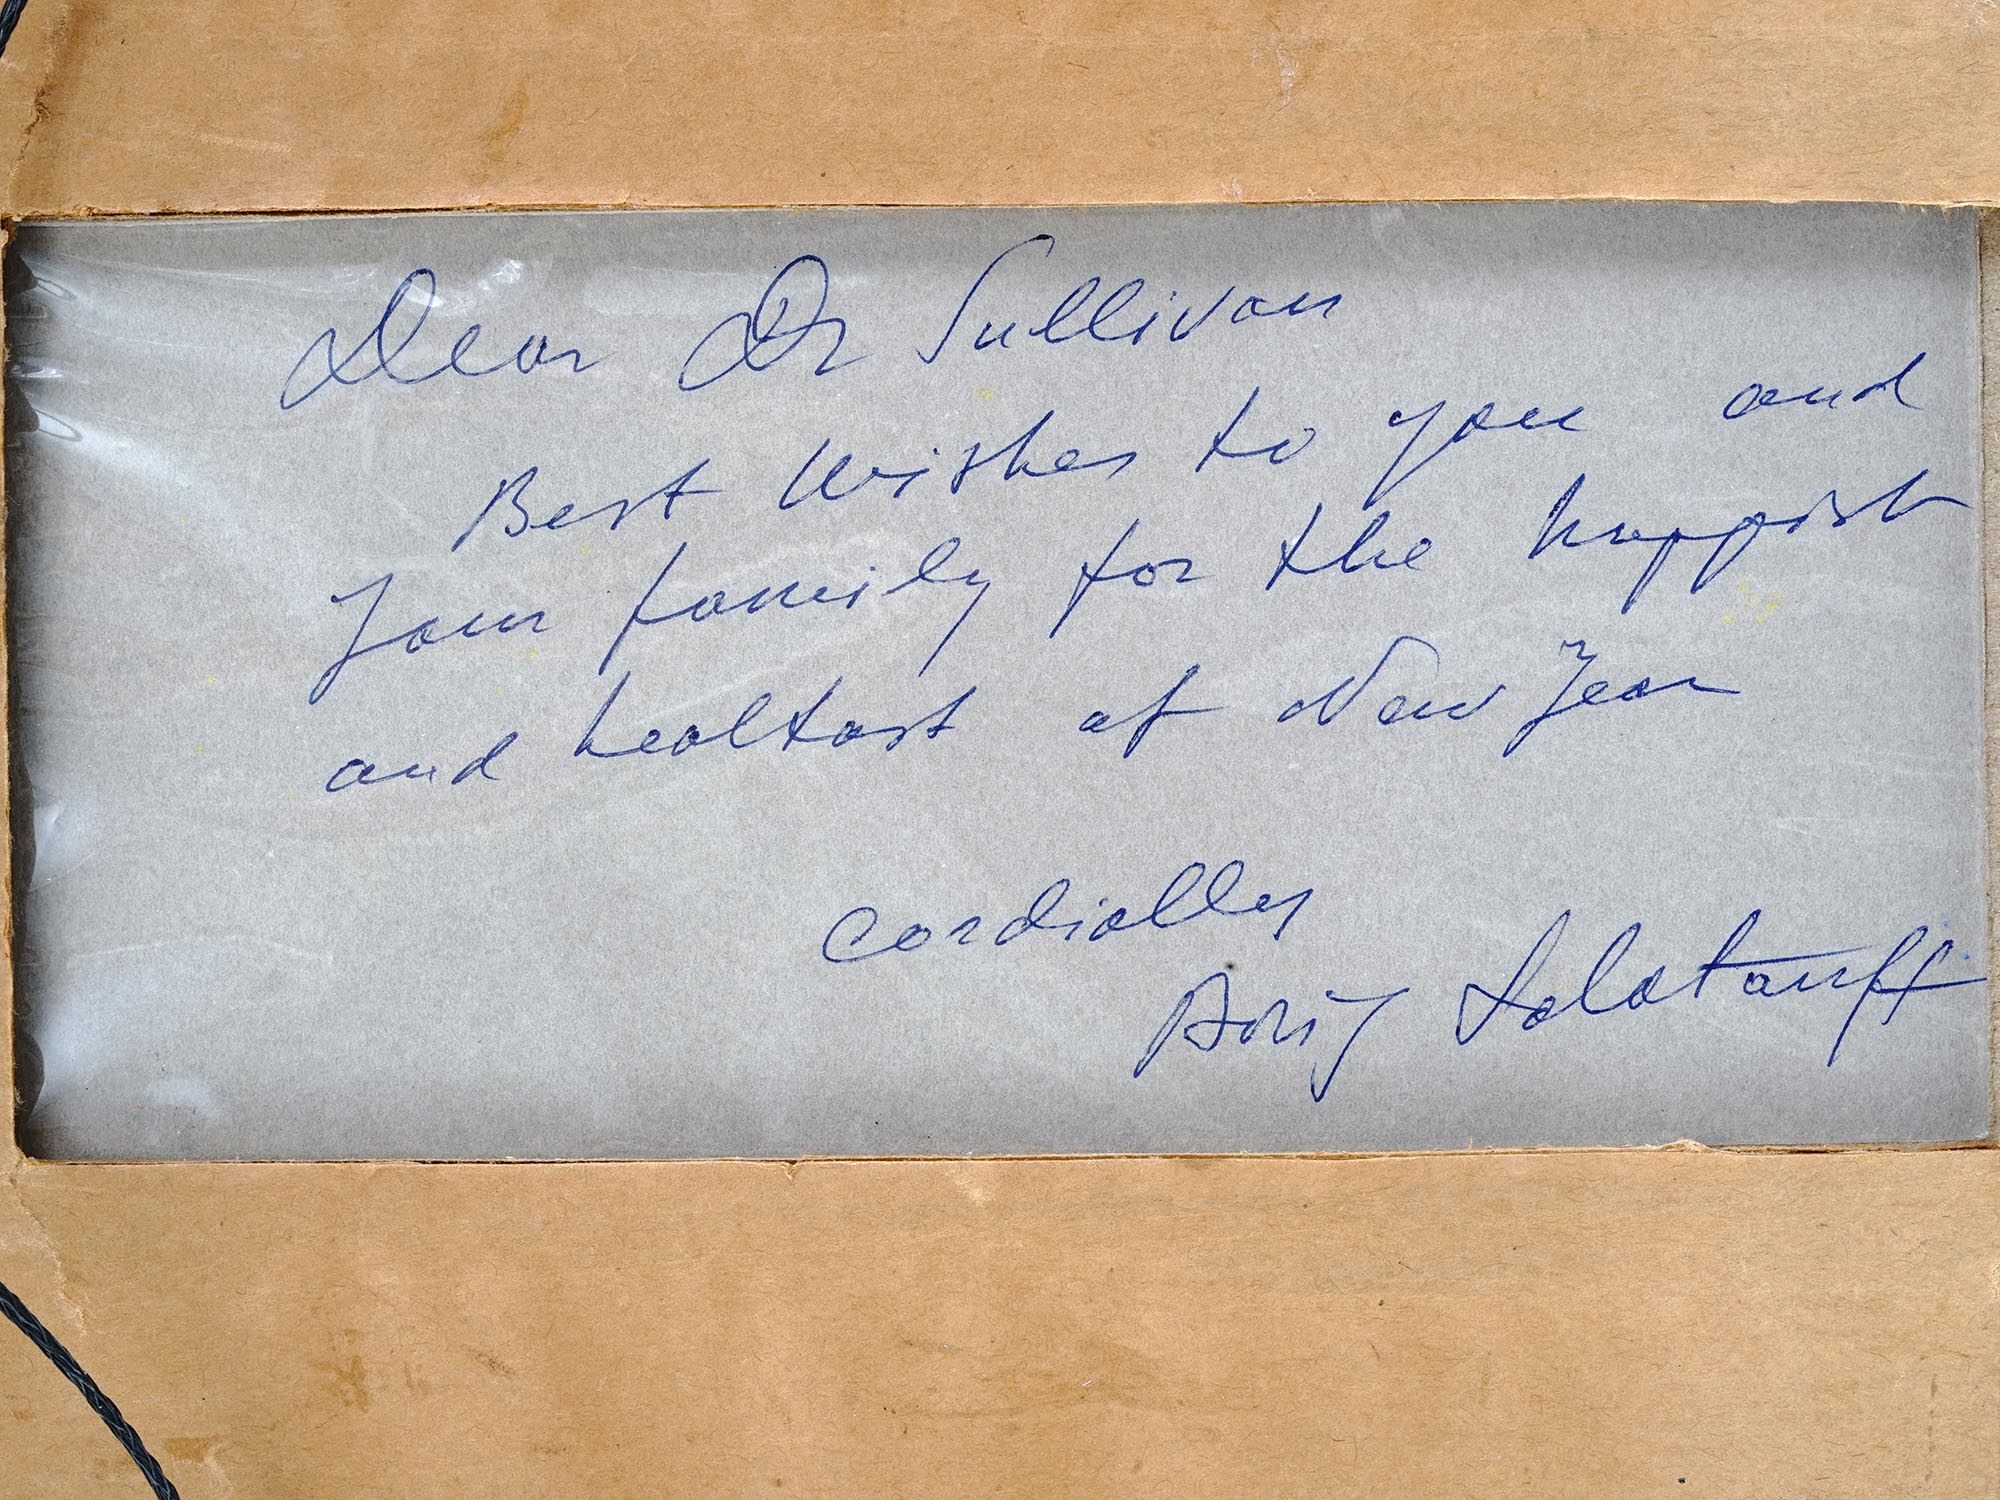 Dear Dr Sullivan
Best Wishes to you and
your family for the happist
and healtast of New Year
Cordially
Boris Solotareff